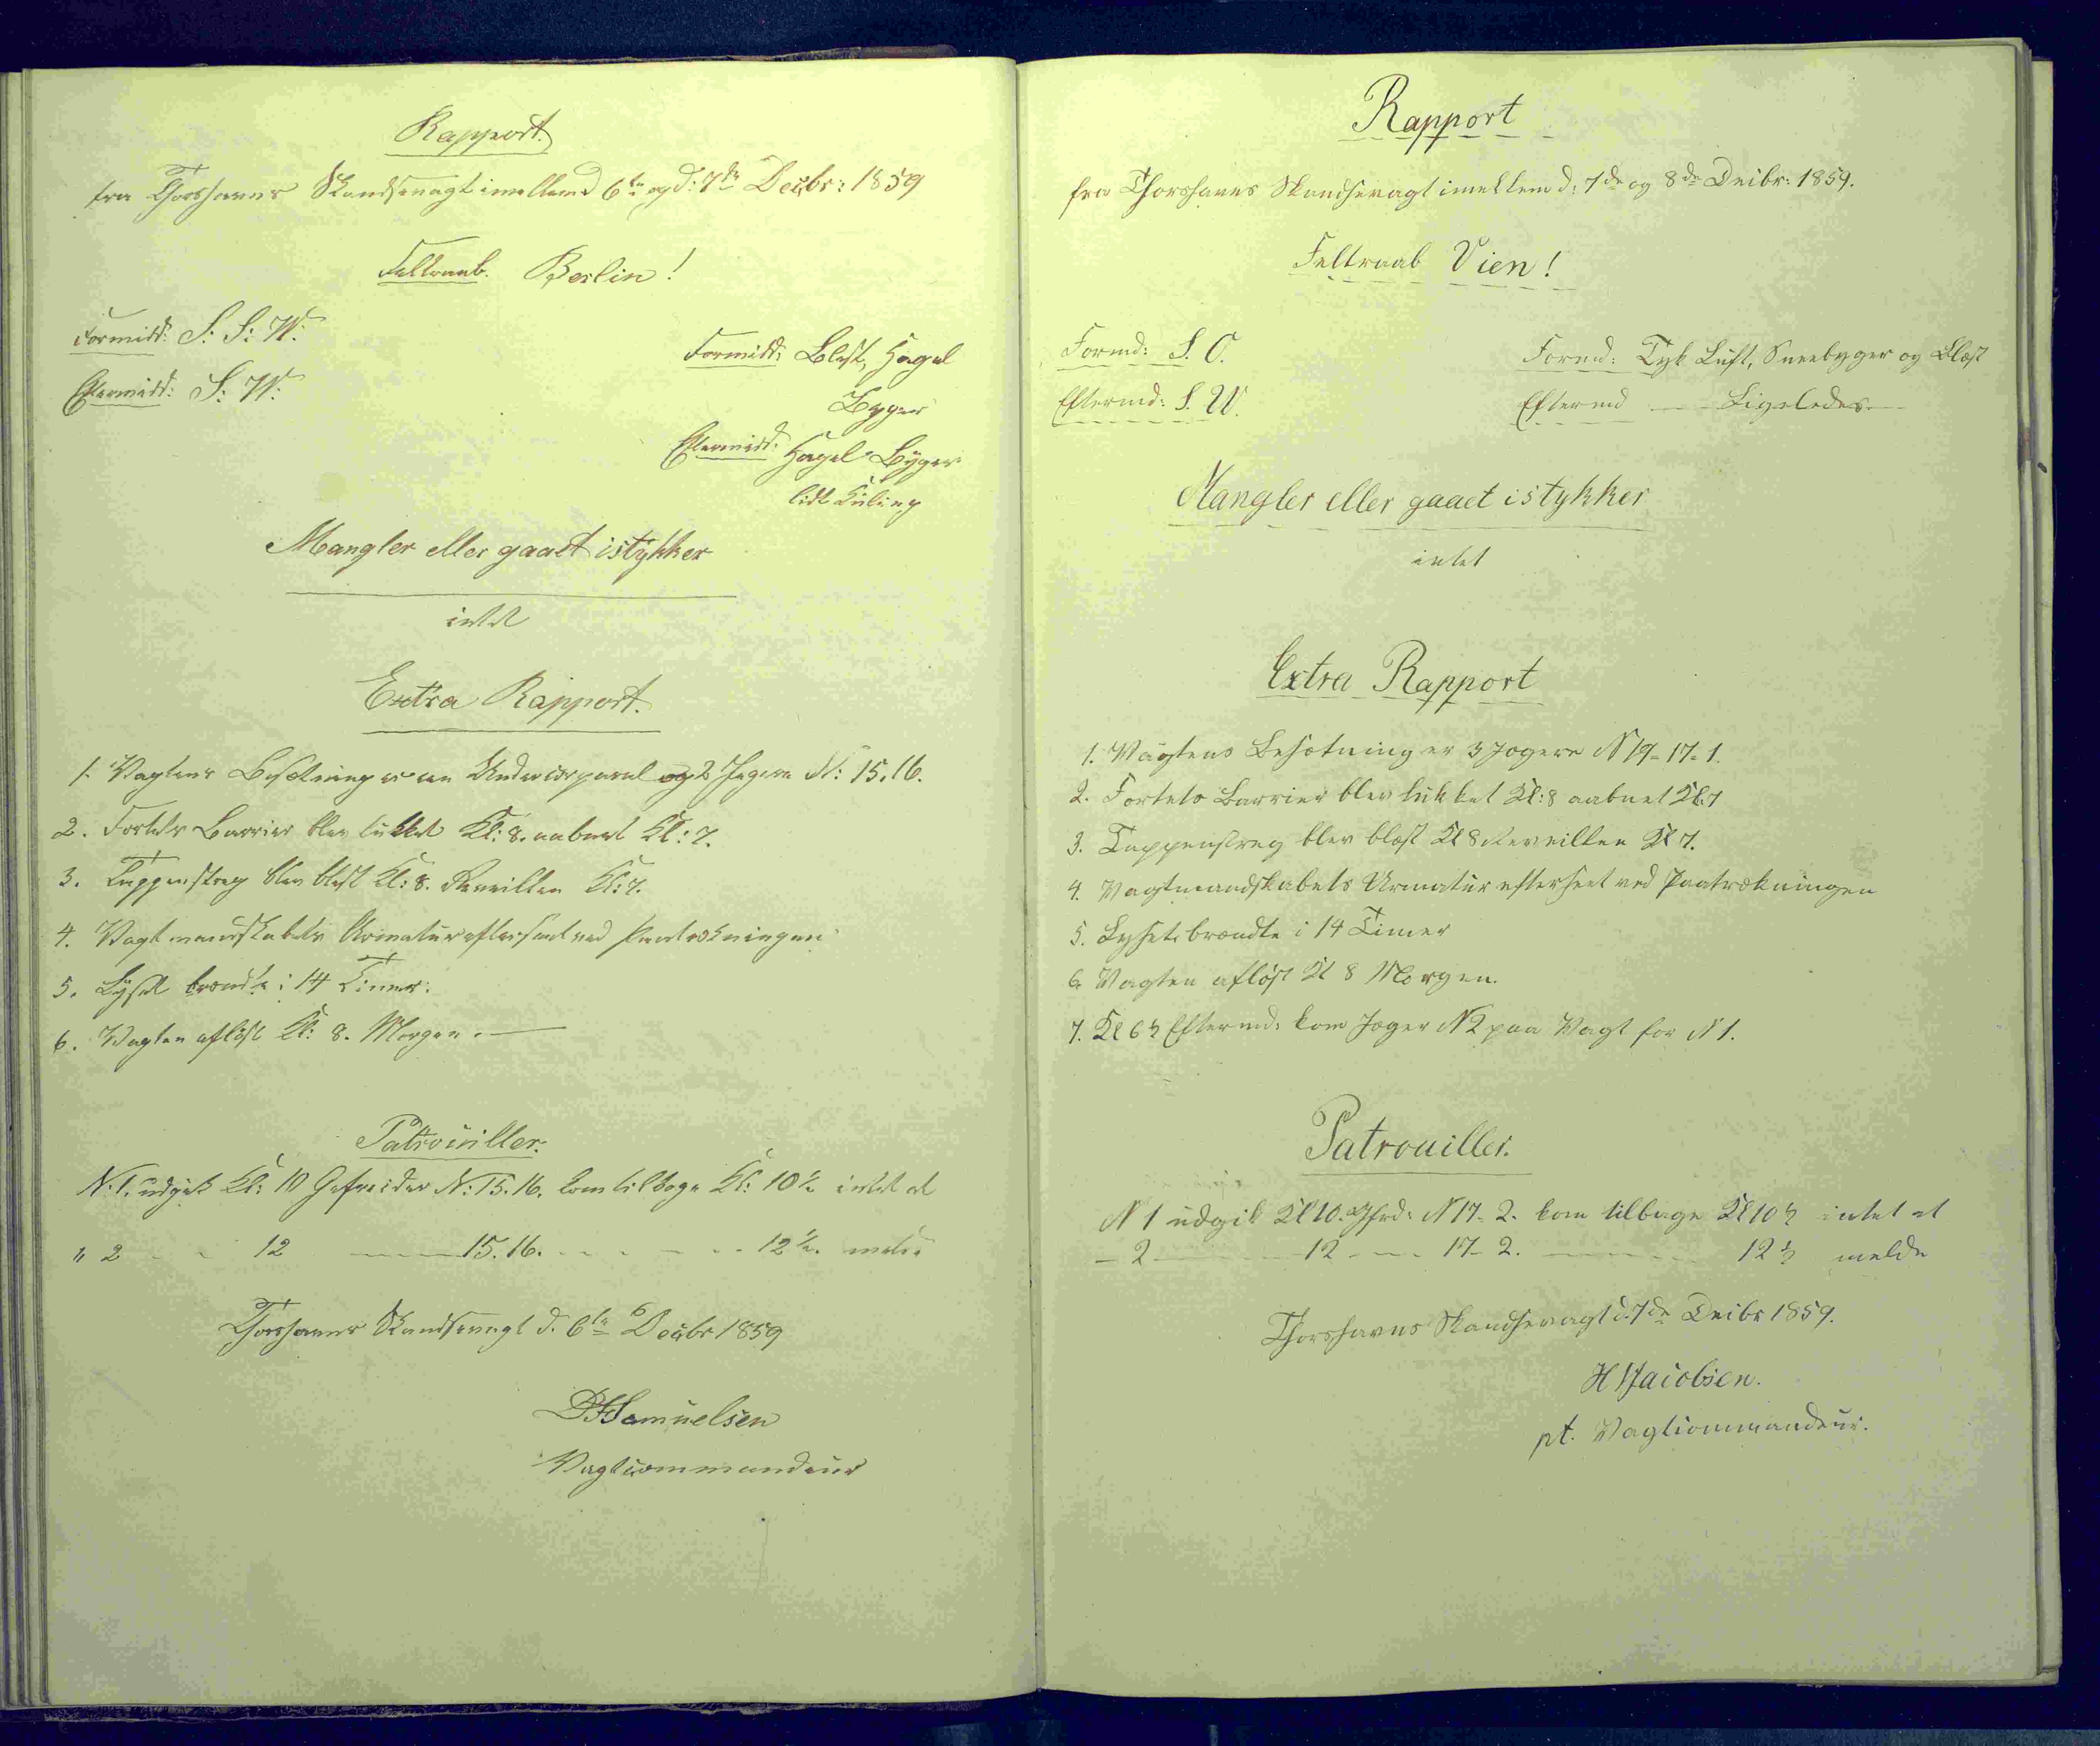 Rapport.
fra Thorshavns Skandsevagt imellem d 6te og d: 7de Decbr: 1859
Feltraab. Berlin!
Formidd: S. S: W:
Eftermidd: S: W:
Formidd: Blæst, Hagel
Byger
Eftermidd: Hagel-Byger
lidt Kuling
Mangler eller gaaet istykker
intet
Extra Rapport.
1. Vagtens Besætning er en Undercorporal og 2 Jægere N: 15. 16.
2. Fortets Barrier blev lukket Kl: 8. aabnet Kl: 7.
3. Tappenstreg blev blæst Kl: 8. Reveillen Kl: 7.
4. Vagtmandskabets Armatur efterseet ved Paatrækningen
5. Lyset brændte i 14 Timer.
6. Vagten afløst Kl: 8. Morgen.
Patrouiller.
N: 1. udgik Kl: 10 Gefreider N: 15. 16. kom tilbage Kl: 10½ intet at
" 2 - - 12 - 15. 16. - - - - 12½. melde
Thorshavns Skandsevagt d. 6te Decbr 1859
Samuelsen
Vagtcommandeur
Rapport
fra Thorshavns Skandsevagt imellem d: 7de og 8de Decbr: 1859.
Feltraab Vien!
Formd: S. O.
Eftermd: S. W.
Formd: Tyk Luft, Sneebyger og Blæst
Eftermd - Ligeledes -
Mangler eller gaaet istykker
intet
Extra Rapport
1. Vagtens Besætning er 3 Jægere N 19-17-1.
2. Fortets Barrier blev lukket Kl: 8 aabnet Kl: 7
3. Tappenstreg blev blæst Kl 8 Reveillen Kl 7.
4. Vagtmandskabets Armatur efterseet ved Paatrækningen
5. Lyset brændte i 14 Timer
6. Vagten afløst Kl 8 Morgen.
7. Kl 6½ Eftermd: kom Jæger N 2 paa Vagt for N 1.
Patrouiller.
N 1 udgik Kl 10. Gfrd: N 17-2. kom tilbage Kl 10½ intet at
- 2 - 12 - - 17-2. - 12½ melde
Thorshavns Skandsevagt d: 7de Decbr 1859.
H Jacobsen.
pt. Vagtcommandeur.